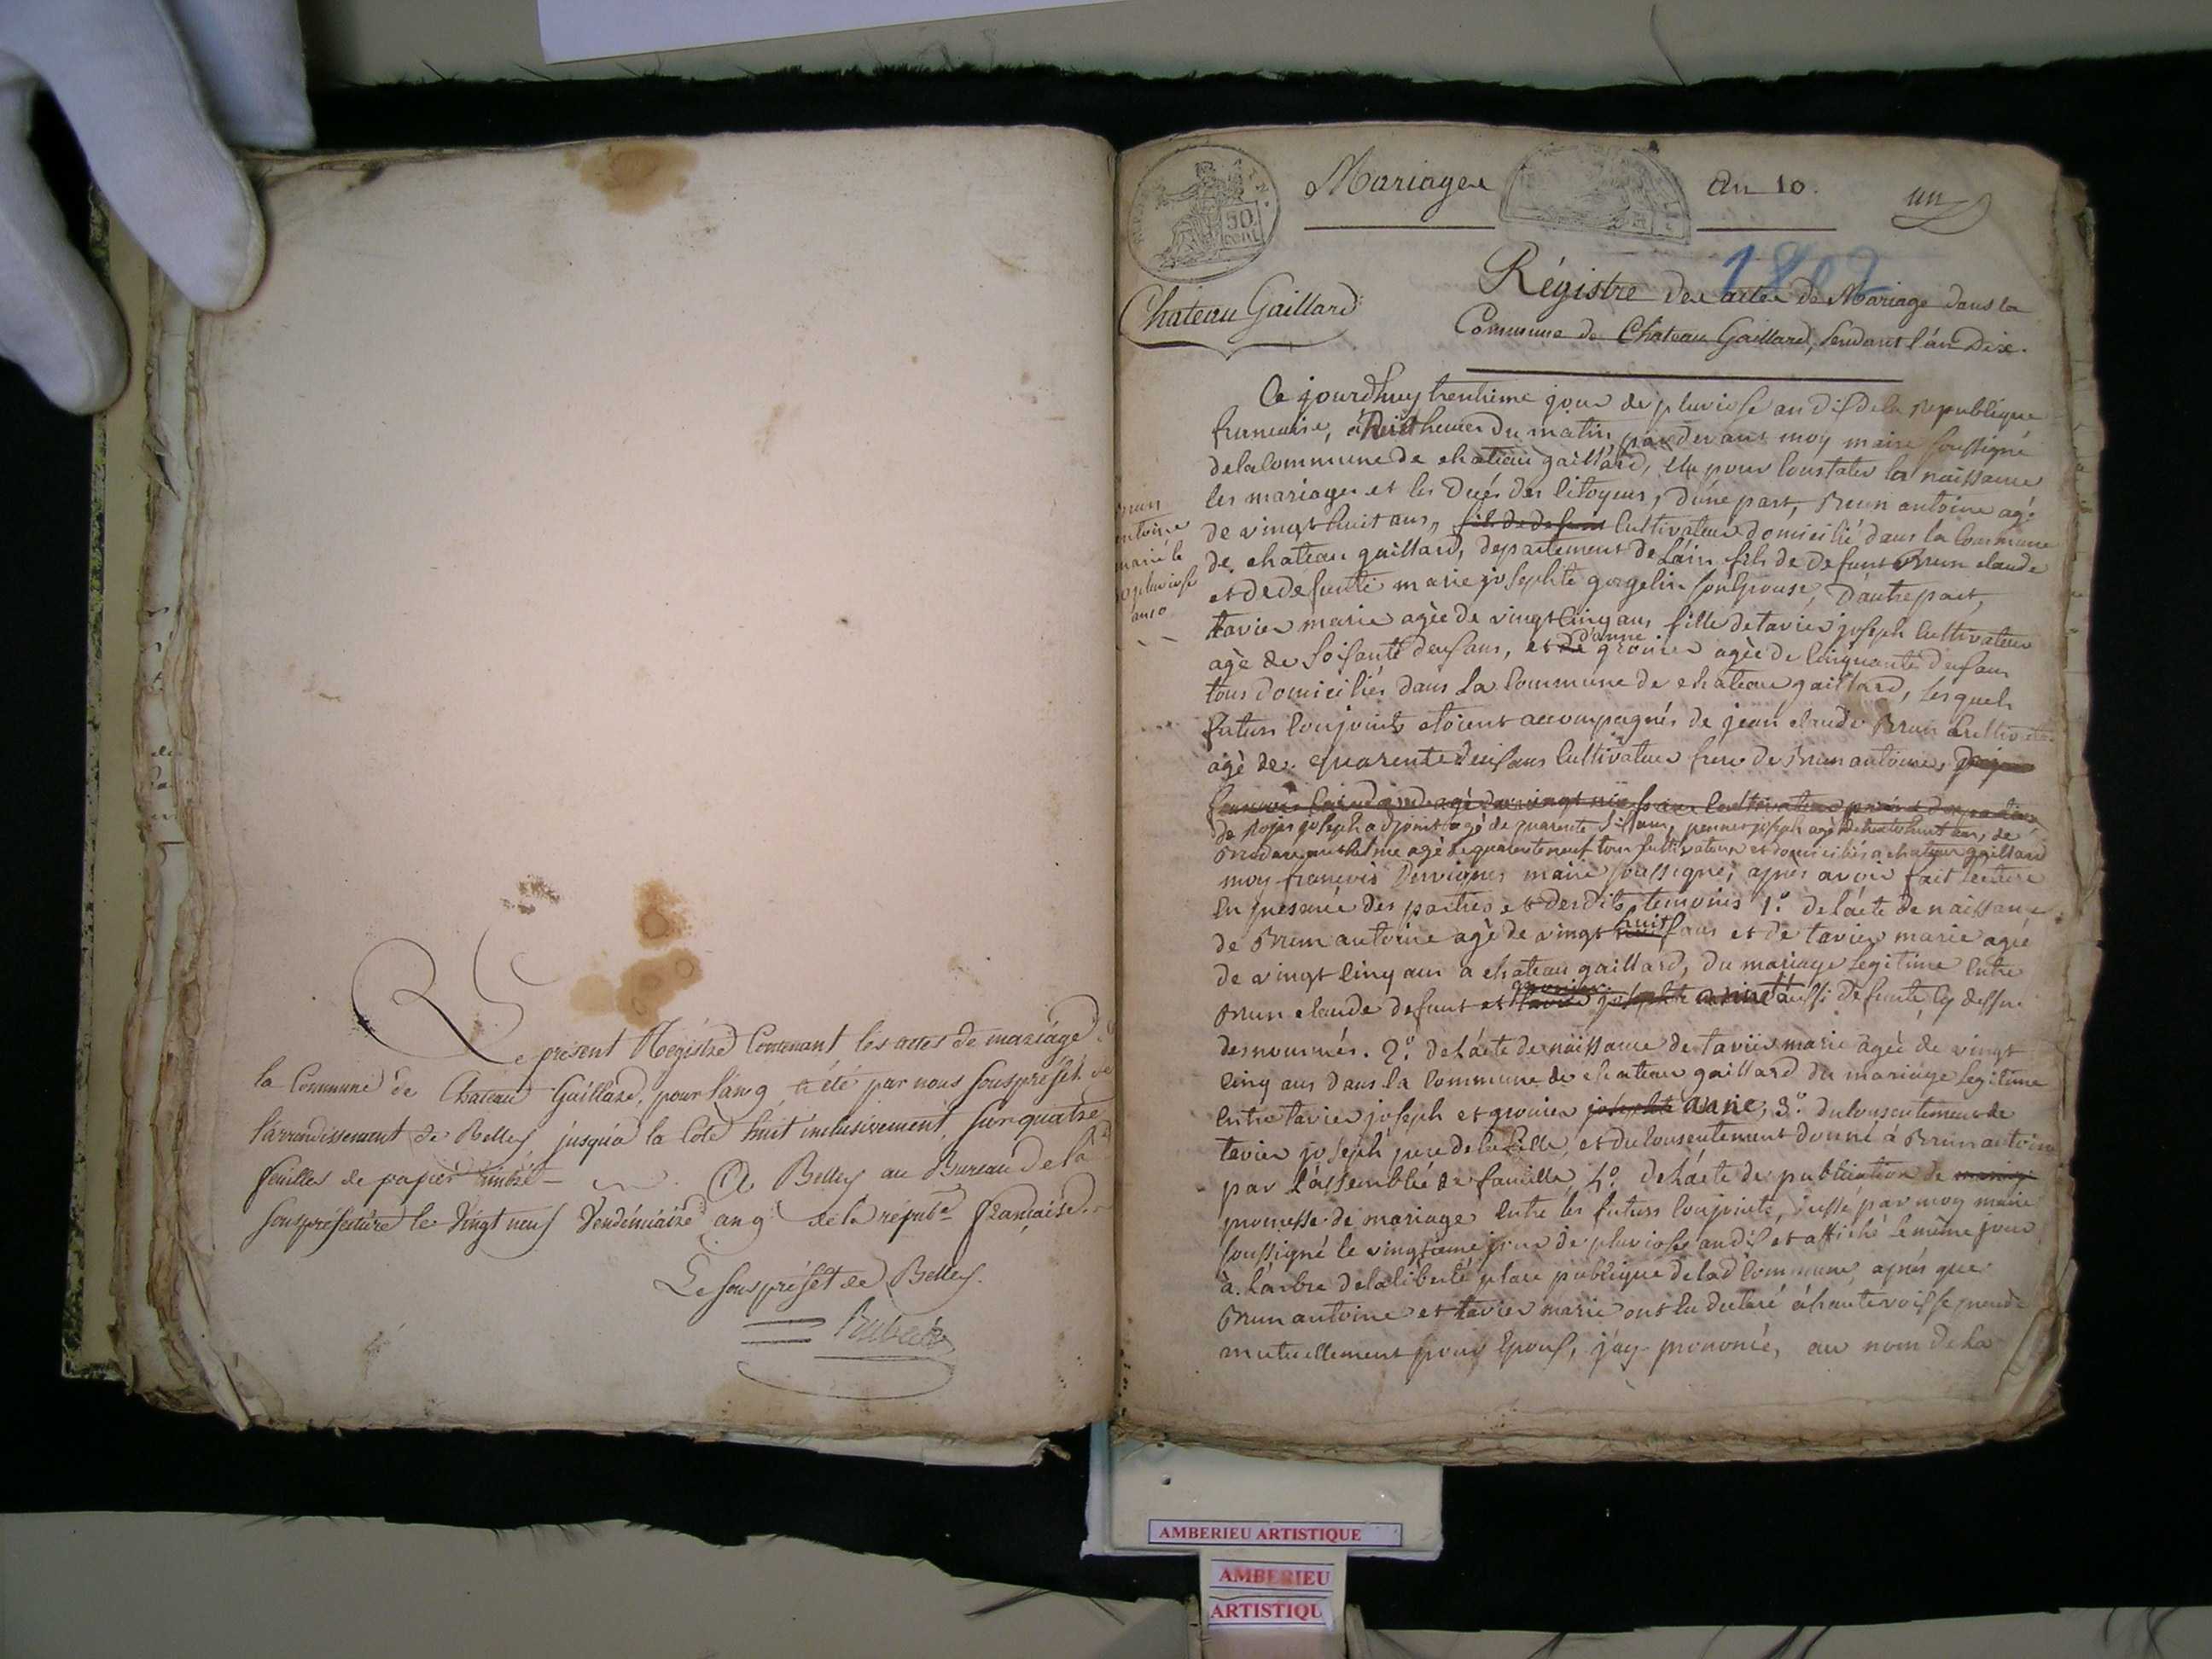 Le présent Régistre Contenant les actes de mariage de
la Commune de Chateau Gaillard, pour l'an 9, a été par nous souspréfet de
l'arrondissement de Belley jusqu'à la cote huit inclusivement, sur quatre
feuilles de papier timbré - A Belley au Bureau de la
souspréfecture le Vingt neuf Vendémiaire an 9 de la répub.e française.
Le souspréfet de Belley.
Mariages
an 10.
un
50
CENT
1802
Chateau Gaillard
Régistre des actes de Mariage dans la
Commune de Chateau Gaillard, pendant l'an Dix.
Brun
antoine
marié le
30 pluviose
an 10
Ce jourdhuy trentieme jour de pluviose an dix de la republique
francaise, à huit heures du matin, pardevant moy maire soussigné
de la commune de chateau gaillard, élu pour constater la naissance
les mariages et les decés des citoyens, d'une part, Brun antoine agé
de vingt huit ans, fils de defunt cultivateur domicilié dans la commune
de chateau gaillard, departement de l'ain fils de defunt Brun claude
et de defunte marie josephte gorgelin son epouse, D'autre part,
tavier marie agée de vingt cinq ans fille de tavier joseph cultivateur
agé de soisante deux ans, et de d'anne gronier agée de cinquante deux ans
tous domiciliés dans la commune de chateau gaillard, lesquels
futurs conjoints etoient accompagnés de jean claude Brun cultivateur
agé de quarente deux ans cultivateur frere de Brun antoine,
de Rojer joseph adjoint agé de quarente six ans, joseph agé de trente huit ans, de
agé de quarente neuf tous cultivateurs et domiciliés a chateau gaillard
moy françois Desvignes maire soussigné, aprés avoir fait lecture
en presence des parties et desdits temoins 1.° de l'acte de naissance
de Brun antoine agé de vingt huit ans et de tavier marie agée
de vingt cinq ans a chateau gaillard, du mariage legitime entre
Brun claude defunt et tavier gronier josephte anne aussi defunte cy dessus
denommés. 2.° de l'acte de naissance de tavier marie agée de vingt
cinq ans dans la commune de chateau gaillard du mariage legitime
entre tavier joseph et gronier josephte anne, 3.° du consentement de
tavier joseph pere de la fille, et du consentement donné à Brun antoine
par l'assemblée de famille, 4.° de l'acte de publication de mariage
promesse de mariage entre les futurs conjoints, dressé par moy maire
soussigné le vingtieme jour de pluviose an dix et affiché le même jour
à l'arbre de la liberté place publique de lad commune, aprés que
Brun antoine et tavier marie ont eu declaré à haute voix se prendre
mutuellement pour epoux, j'ay prononcé, au nom de la
AMBERIEU ARTISTIQUE
AMBERIEU
ARTISTIQU